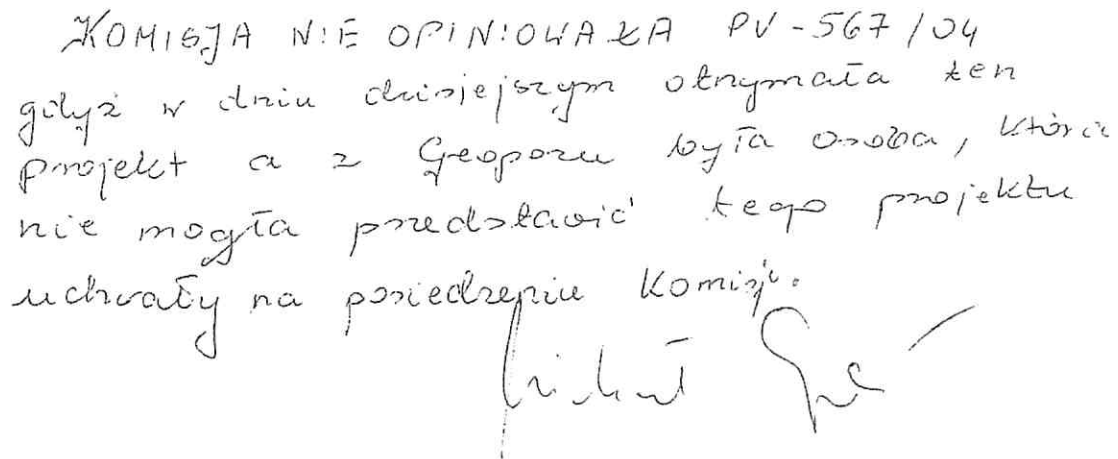 KOMISJA NIE OPINIOWAŁA PU-567/04
gdyż w dniu dzisiejszym otrzymała ten
projekt a z Geopozu była osoba, która
nie mogła przedstawić tego projektu
uchwały na posiedzeniu Komisji.
Michał